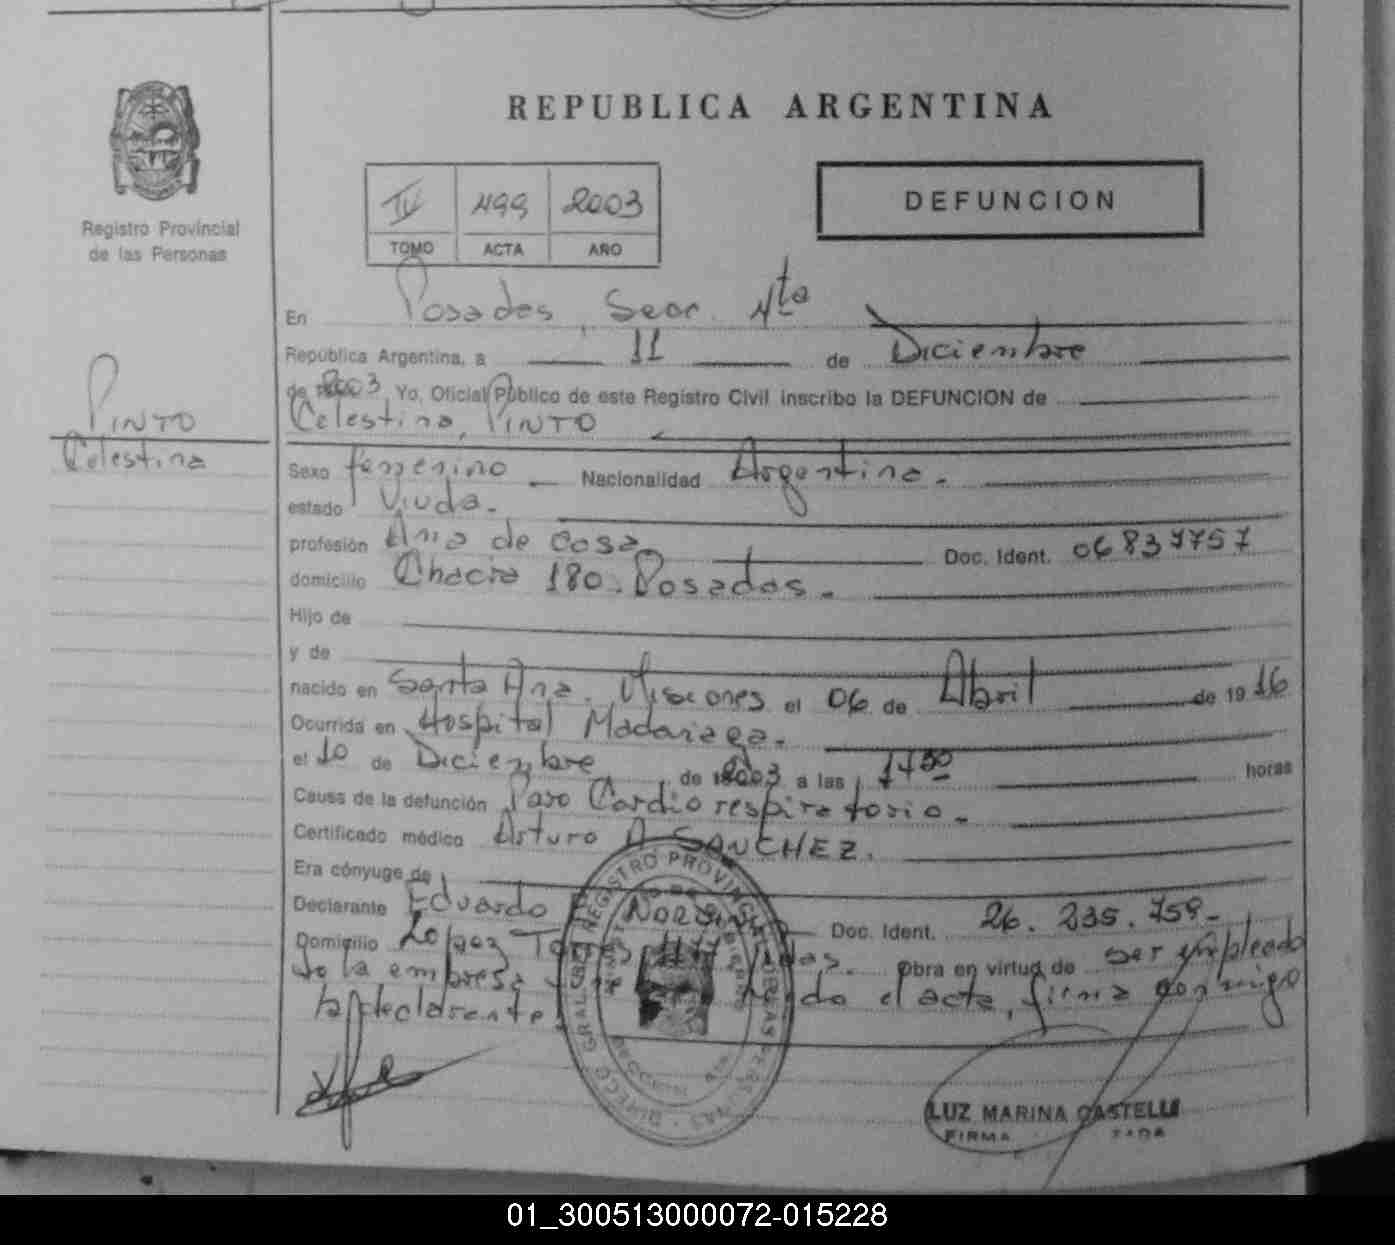 REPUBLICA ARGENTINA
Registro Provincial
de las Personas
IV 499 2003
TOMO ACTA AÑO
DEFUNCION
PINTO
Celestina
En Posadas, Secc. 4ta
República Argentina, a 11 de Diciembre
de 2003 Yo, Oficial Público de este Registro Civil inscribo la DEFUNCION de
Celestina, PINTO
Sexo femenino Nacionalidad Argentina.
estado Viuda.
profesión Ama de Casa Doc. Ident. 06837757
domicilio Chacra 180. Posadas.
Hijo de
y de
nacido en Santa Ana. Misiones el 06 de Abril de 1916
Ocurrida en Hospital Madariaga.
el 10 de Diciembre de 2003 a las 1730 horas
Causa de la defunción Paro Cardiorespiratorio.
Certificado médico Arturo A SANCHEZ.
Era cónyuge de
Declarante Eduardo Doc. Ident. 26.235.759
Domicilio López Obra en virtud de ser empleado
de la empresa el acta, firma conmigo
la declarente
REGISTRO PROVINCIAL DE LAS PERSONAS
LUZ MARINA CASTELLI
FIRMA
01_300513000072-015228